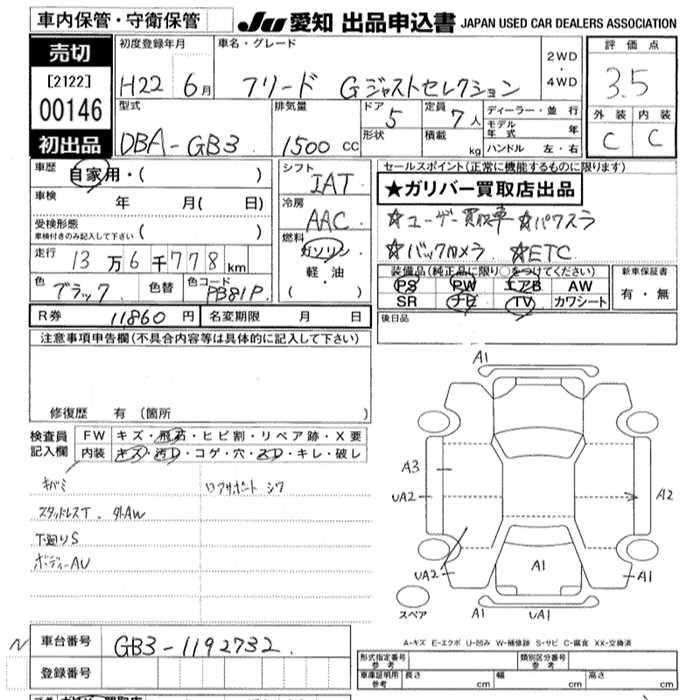 車内保管・守衛保管
JU 愛知 出品申込書 JAPAN USED CAR DEALERS ASSOCIATION
売切
[2122]
00146
初出品
初度登録年月
H22 6月
車名・グレード
フリード Gジャストセレクション
2WD
・
4WD
評価点
3.5
外装 内装
C C
型式
DBA-GB3
排気量
1500 cc
ドア
5
形状
定員
7人
積載
kg
ディーラー・並行
モデル年式 年
ハンドル 左・右
車歴
自家用・( )
車検 年 月( 日)
受検形態
車検付きのみ記入して下さい ( )
走行 13万6千778km
色 ブラック 色替 色コード PB81P
シフト
IAT
冷房
AAC
燃料
ガソリン
軽・油
( )
セールスポイント(正常に機能するものに限ります)
★ガリバー買取店出品
☆ユーザー買取車 ☆パワスラ
☆バックカメラ ☆ETC
装備品(純正品に限り○をつけてください)
PS PW エアB AW
SR ナビ TV カワシート
新車保証書
有・無
R券 11860円 名変期限 月 日
後日品
注意事項申告欄(不具合内容等は具体的に記入して下さい)
修復歴 有 (箇所 )
検査員
記入欄
FW キズ・飛石・ヒビ割・リペア跡・X要
内装 キズ・汚D・コゲ・穴・スD・キレ・破レ
キバミ
ロアサポート シワ
スタッドレスT. 外AW
下廻りS
ボディーAU
A1
A3
UA2
A2
UA2
A1
A1
スペア
A1
UA1
A-キズ E-エクボ U-凹み W-補修跡 S-サビ C-腐食 XX-交換済
N
車台番号 GB3-1192732
登録番号
形式指定番号
参考
類別区分番号
参考
車庫証明用
参考
長さ cm 幅 cm 高さ cm